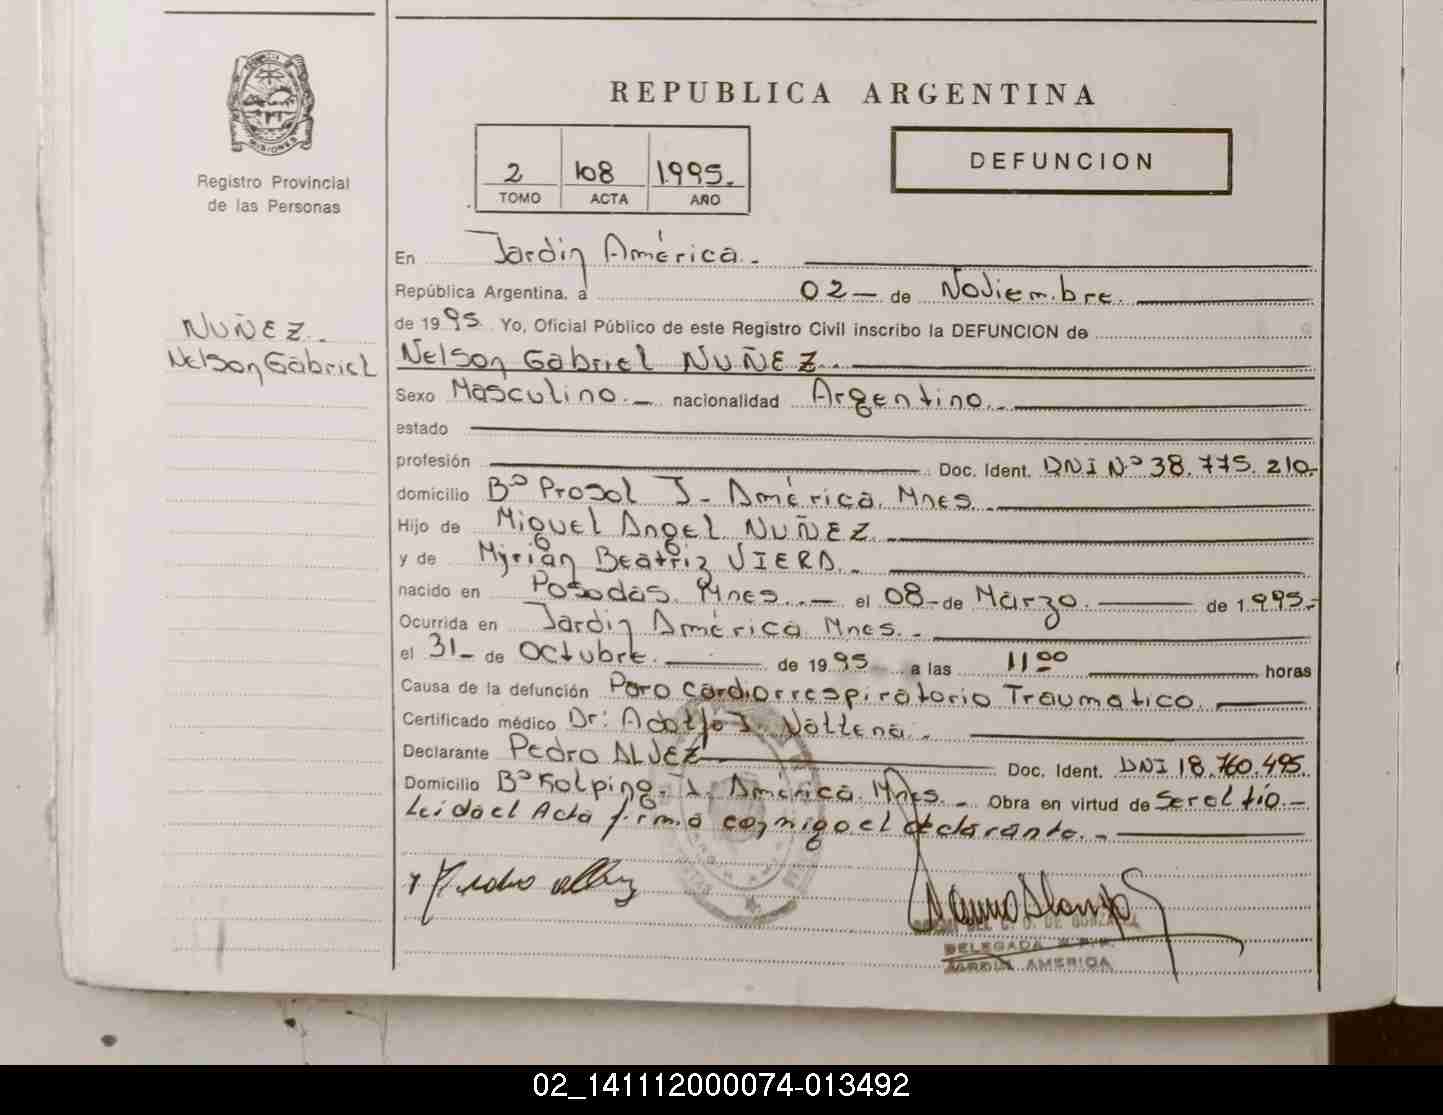 REPUBLICA ARGENTINA
MISIONES
Registro Provincial
de las Personas
2 108 1995.
TOMO ACTA AÑO
DEFUNCION
NUÑEZ.
Nelson Gabriel
En Jardin América.-
República Argentina, a 02- de Noviembre
de 1995. Yo, Oficial Público de este Registro Civil inscribo la DEFUNCION de
Nelson Gabriel NUÑEZ.
Sexo Masculino.- nacionalidad Argentino.
estado
profesión Doc. Ident. DNI Nº 38.775.210.-
domicilio Bº Prosol J. América. Mnes.
Hijo de Miguel Angel NUÑEZ.
y de Myrian Beatriz VIERA.-
nacido en Posadas. Mnes.- el 08- de Marzo. de 1.995.-
Ocurrida en Jardin América Mnes.-
el 31- de Octubre. de 1995 a las 11 00 horas
Causa de la defunción Paro cardiorrespiratorio Traumatico.
Certificado médico Dr: Adolfo J.
Declarante Pedro ALVEZ Doc. Ident. DNI 18.760.495.
Domicilio Bº Kolping. J. América. Mnes.- Obra en virtud de Ser el tío.-
Leida el Acta firma conmigo el declarante.-
DELEGADA R.P.P.
JARDIN AMERICA
02_141112000074-013492